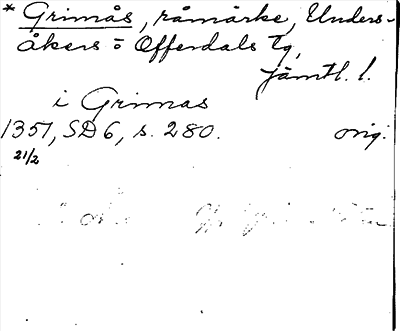 * Grimås, råmärke, Unders-
åkers o Offerdals tg,
Jämtl. l.
i Grimas
1351, SD 6, s. 280. orig.
21/2